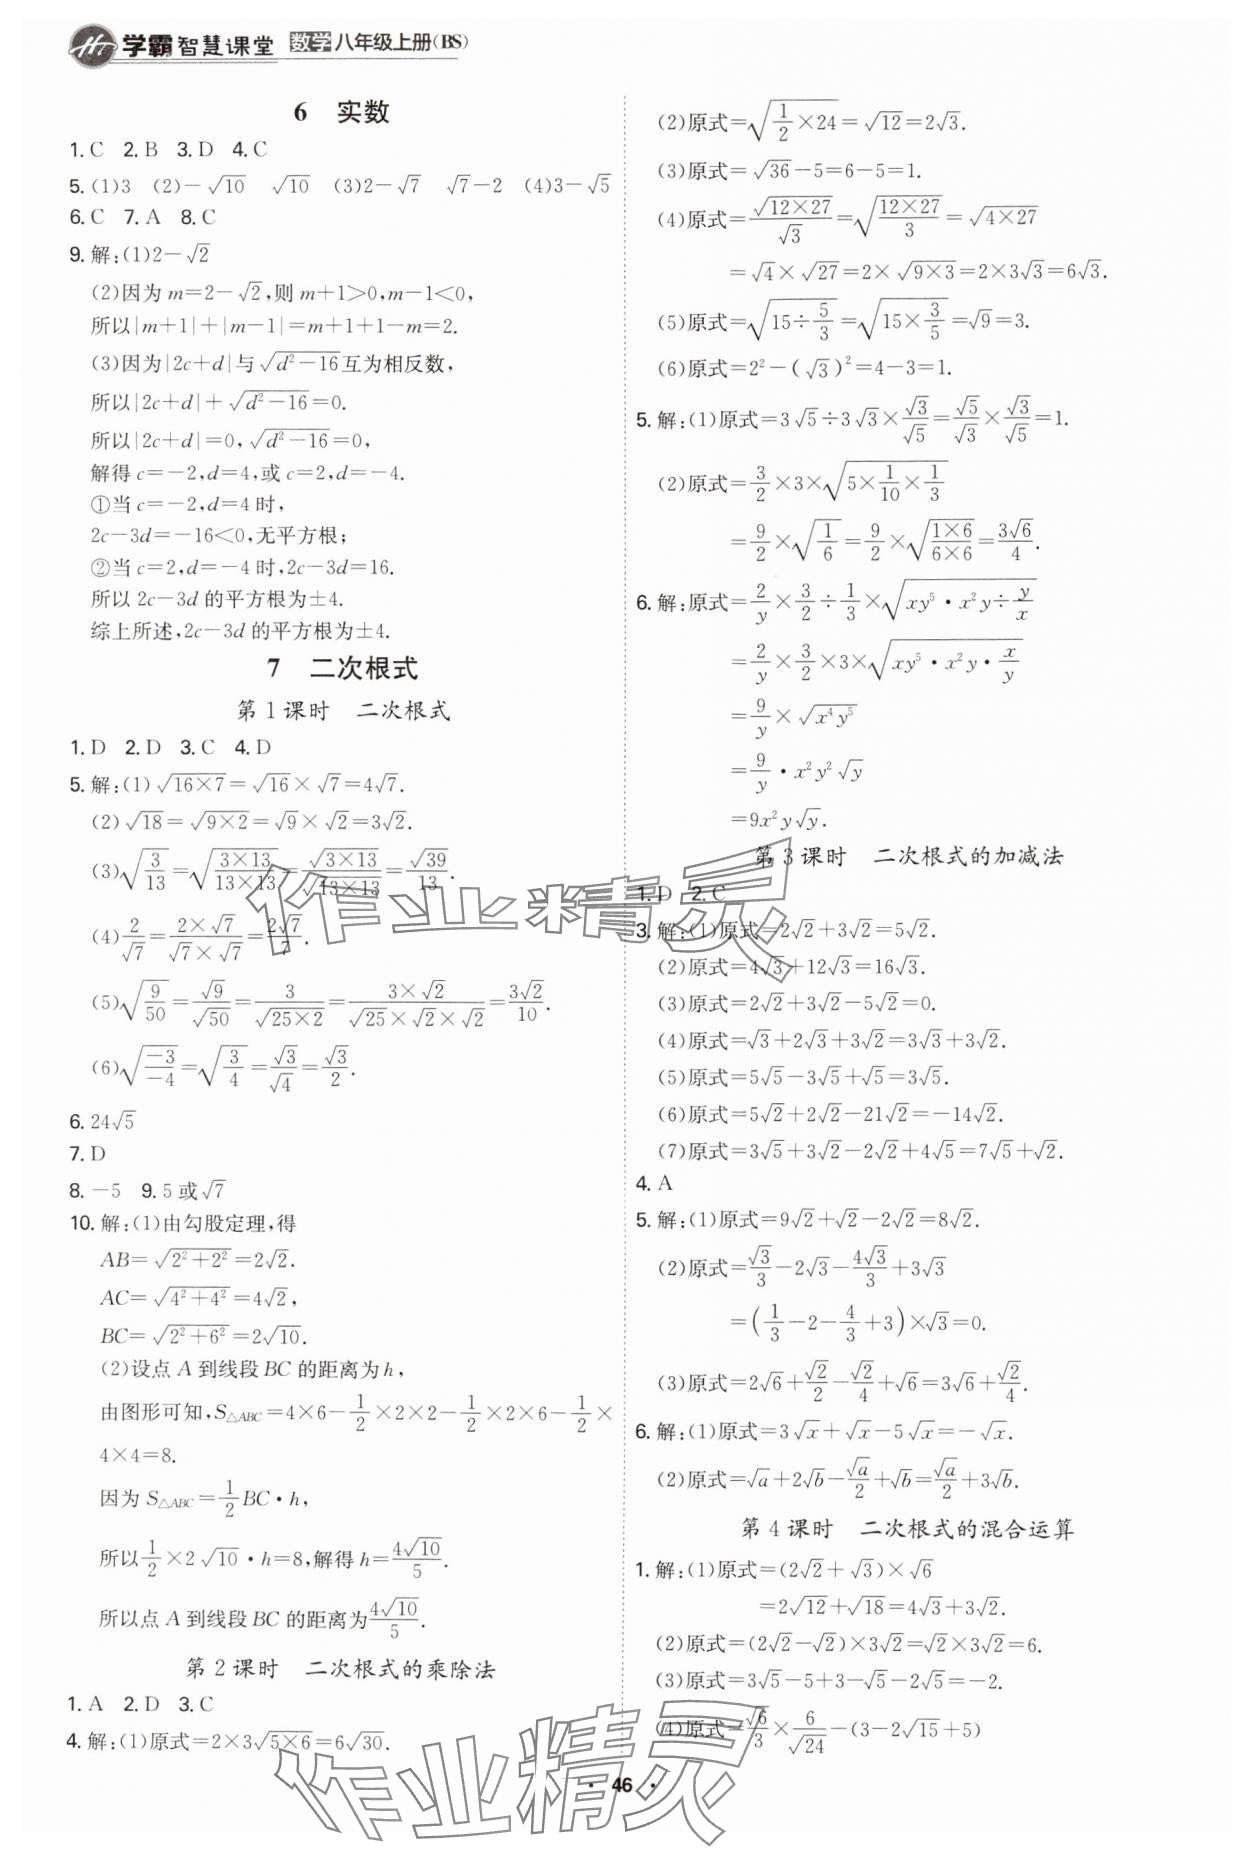 学霸智慧课堂 数学八年级上册(BS)
6 实数
1. C 2. B 3. D 4. C
5. (1)3 (2)-√10 √10 (3)2-√7 √7-2 (4)3-√5
6. C 7. A 8. C
9. 解:(1)2-√2
(2)因为 m=2-√2,则 m+1>0,m-1<0,
所以|m+1|+|m-1|=m+1+1-m=2.
(3)因为|2c+d|与√(d²-16)互为相反数,
所以|2c+d|+√(d²-16)=0.
所以|2c+d|=0,√(d²-16)=0,
解得 c=-2,d=4,或 c=2,d=-4.
①当 c=-2,d=4 时,
2c-3d=-16<0,无平方根;
②当 c=2,d=-4 时,2c-3d=16.
所以 2c-3d 的平方根为±4.
综上所述,2c-3d 的平方根为±4.
7 二次根式
第 1 课时 二次根式
1. D 2. D 3. C 4. D
5. 解:(1)√(16×7)=√16×√7=4√7.
(2)√18=√(9×2)=√9×√2=3√2.
(3)√(3/13)=√((3×13)/(13×13))=√(3×13)/√(13×13)=√39/13.
(4)2/√7=(2×√7)/(√7×√7)=2√7/7.
(5)√(9/50)=√9/√50=3/√(25×2)=(3×√2)/(√25×√2×√2)=3√2/10.
(6)√(-3/-4)=√(3/4)=√3/√4=√3/2.
6. 24√5
7. D
8. -5 9. 5 或√7
10. 解:(1)由勾股定理,得
AB=√(2²+2²)=2√2.
AC=√(4²+4²)=4√2,
BC=√(2²+6²)=2√10.
(2)设点 A 到线段 BC 的距离为 h,
由图形可知,S△ABC=4×6-1/2×2×2-1/2×2×6-1/2×
4×4=8.
因为 S△ABC=1/2 BC·h,
所以1/2×2√10·h=8,解得 h=4√10/5.
所以点 A 到线段 BC 的距离为4√10/5.
第 2 课时 二次根式的乘除法
1. A 2. D 3. C
4. 解:(1)原式=2×3√(5×6)=6√30.
(2)原式=√(1/2×24)=√12=2√3.
(3)原式=√36-5=6-5=1.
(4)原式=√(12×27)/√3=√((12×27)/3)=√(4×27)
=√4×√27=2×√(9×3)=2×3√3=6√3.
(5)原式=√(15÷5/3)=√(15×3/5)=√9=3.
(6)原式=2²-(√3)²=4-3=1.
5. 解:(1)原式=3√5÷3√3×√3/√5=√5/√3×√3/√5=1.
(2)原式=3/2×3×√(5×1/10×1/3)
=9/2×√(1/6)=9/2×√((1×6)/(6×6))=3√6/4.
6. 解:原式=2/y×3/2÷1/3×√(xy⁵·x²y÷y/x)
=2/y×3/2×3×√(xy⁵·x²y·x/y)
=9/y×√(x⁴y⁵)
=9/y·x²y²√y
=9x²y√y.
第 3 课时 二次根式的加减法
1. D 2. C
3. 解:(1)原式=2√2+3√2=5√2.
(2)原式=4√3+12√3=16√3.
(3)原式=2√2+3√2-5√2=0.
(4)原式=√3+2√3+3√2=3√3+3√2.
(5)原式=5√5-3√5+√5=3√5.
(6)原式=5√2+2√2-21√2=-14√2.
(7)原式=3√5+3√2-2√2+4√5=7√5+√2.
4. A
5. 解:(1)原式=9√2+√2-2√2=8√2.
(2)原式=√3/3-2√3-4√3/3+3√3
=(1/3-2-4/3+3)×√3=0.
(3)原式=2√6+√2/2-√2/4+√6=3√6+√2/4.
6. 解:(1)原式=3√x+√x-5√x=-√x.
(2)原式=√a+2√b-√a/2+√b=√a/2+3√b.
第 4 课时 二次根式的混合运算
1. 解:(1)原式=(2√2+√3)×√6
=2√12+√18=4√3+3√2.
(2)原式=(2√2-√2)×3√2=√2×3√2=6.
(3)原式=3√5-5+3-√5-2√5=-2.
(4)原式=√6/3×6/√24-(3-2√15+5)
· 46 ·
作业精灵
作业精灵